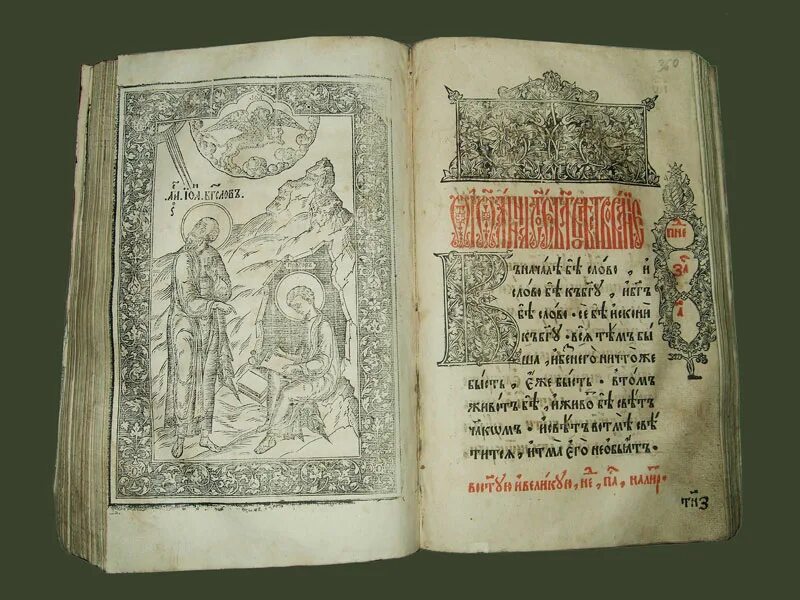 АП. ІѠА. БГ҃СЛОВЪ.
Въ началѣ бѣ слово, и
слово бѣ къ бг҃у, и бг҃ъ
бѣ слово. се бѣ искони
къ бг҃у. вся тѣмъ бы
ша, и без него ничтоже
бысть, еже бысть. в томъ
животъ бѣ, и живо҃ бѣ свѣтъ
чл҃комъ. и свѣтъ во тмѣ свѣ
тится, и тма его не обьятъ.
в ст҃ую и великую, не, па, на лир.
пне
за
а
тн҃з